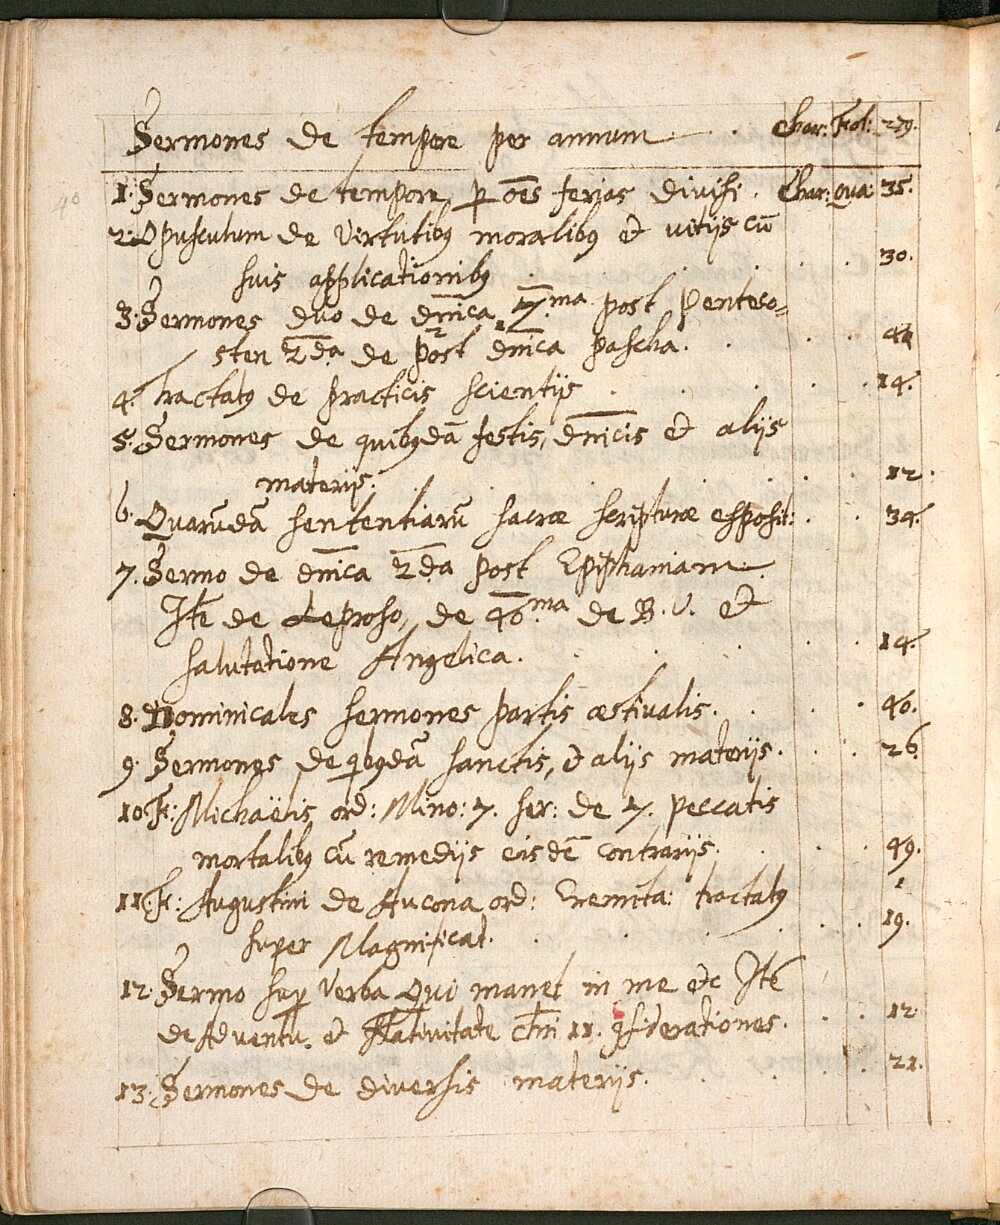 Sermones de tempore per annum Char: Fol: 279.
1. Sermones de tempore p oēs ferias divisi. Char: Qua: 35.
2. Opusculum de Virtutibꝰ moralibꝰ et vitijs cū
suis applicationibꝰ 30.
3. Sermones duo de dn̄ica 7.ma post Penteco=
sten 2da de post dn̄ica pascha.
4. Tractatꝰ de practicis scientijs 14.
5. Sermones de quibꝰdā festis, dn̄icis et alijs
materijs. 12.
6. Quarūdā sententiarū sacræ scripturæ exposit: 34.
7. Sermo de dn̄ica 2da post Epiphaniam.
Itē de Leproso, de 40.ma de B. V. et
salutatione Angelica. 14.
8. Dominicales sermones partis æstivalis. 40.
9. Sermones de qibꝰdā sanctis, et alijs materijs. 26.
10. Fr: Michaëlis ord: Mino: 7. ser: de 7. peccatis
mortalibꝰ cū remedijs eisdē contrarijs. 49.
11. Fr: Augustini de Ancona ord: Eremita: tractatꝰ
super Magnificat. 19.
12. Sermo sup Verba Qui manet in me etc Itē
de Adventu. et Nativitate chri 11. ꝯsiderationes. 12
13. Sermones de diversis materijs. 21.